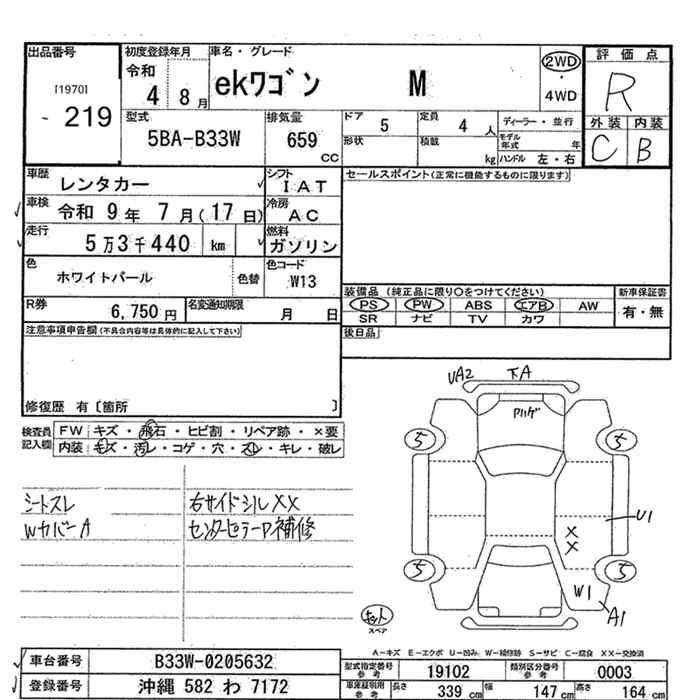 出品番号
[1970]
219
初度登録年月
令和
4 8月
車名・グレード
ekワゴン M
2WD
・
4WD
評価点
R
外装 内装
C B
型式
5BA-B33W
排気量
659
cc
ドア
5
定員
4 人
ディーラー・並行
形状
積載
kg
モデル年式
年
ハンドル 左・右
車歴
レンタカー
シフト
IAT
セールスポイント(正常に機能するものに限ります)
車検
令和 9年 7月(17日)
冷房
AC
走行
5万3千440 km
燃料
ガソリン
色
ホワイトパール
色替
色コード
W13
装備品 (純正品に限り○をつけてください)
新車保証書
PS PW ABS エアB AW
SR ナビ TV カワ
有・無
R券
6,750円
名変通知期限
月 日
後日品
注意事項申告欄(不具合内容等は具体的に記入して下さい)
修復歴 有〔箇所 〕
検査員記入欄
FW キズ・飛石・ヒビ割・リペア跡・×要
内装 キズ・汚レ・コゲ・穴・スレ・キレ・破レ
シートスレ
Wカバー A
右サイドシルXX
センターピラーP補修
UA2
下A
Pハゲ
5
5
U1
X
X
5
5
W1
A1
キット
スペア
A-キズ E-エクボ U-凹み W-補修跡 S-サビ C-腐食 XX-交換済
車台番号
B33W-0205632
登録番号
沖縄 582 わ 7172
型式指定番号
参考
19102
類別区分番号
参考
0003
車庫証明用
参考
長さ
339 cm
幅
147 cm
高さ
164 cm